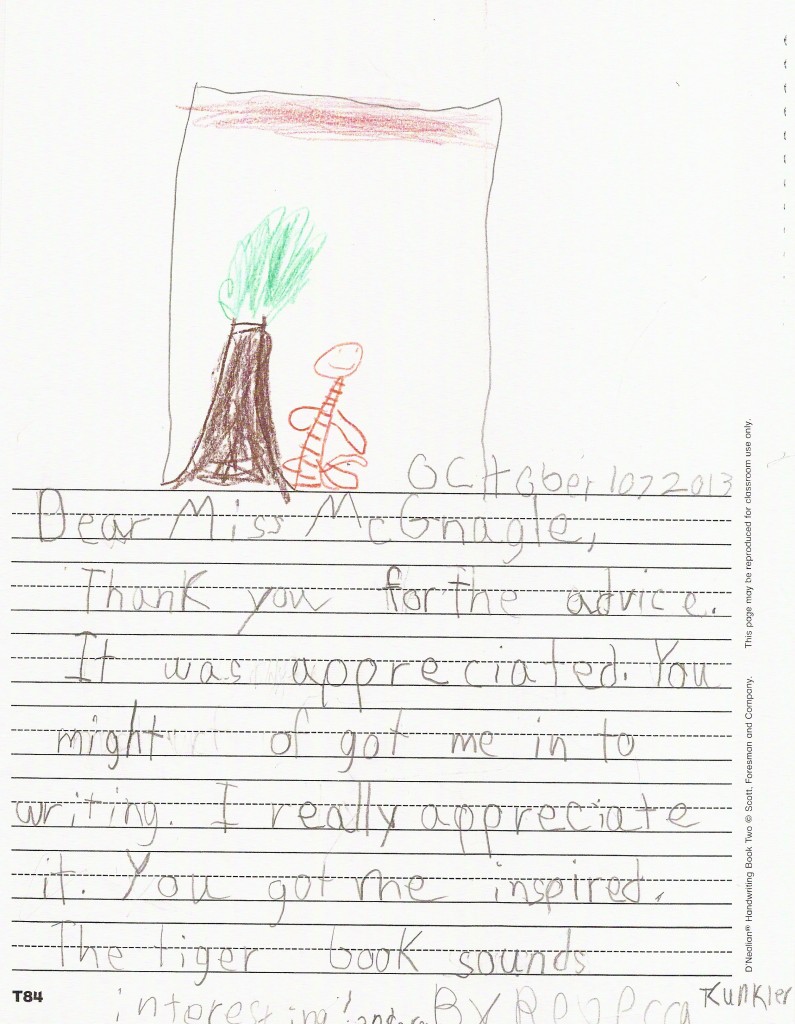 OCtober 10, 2013
Dear Miss McGnagle,
Thank you for the advice.
It was appreciated. You
might of got me in to
writing. I really appreciate
it. You got me inspired.
The tiger book sounds
interesting!
By Rebecca Kunkler
T84
D'Nealian® Handwriting Book Two © Scott, Foresman and Company. This page may be reproduced for classroom use only.